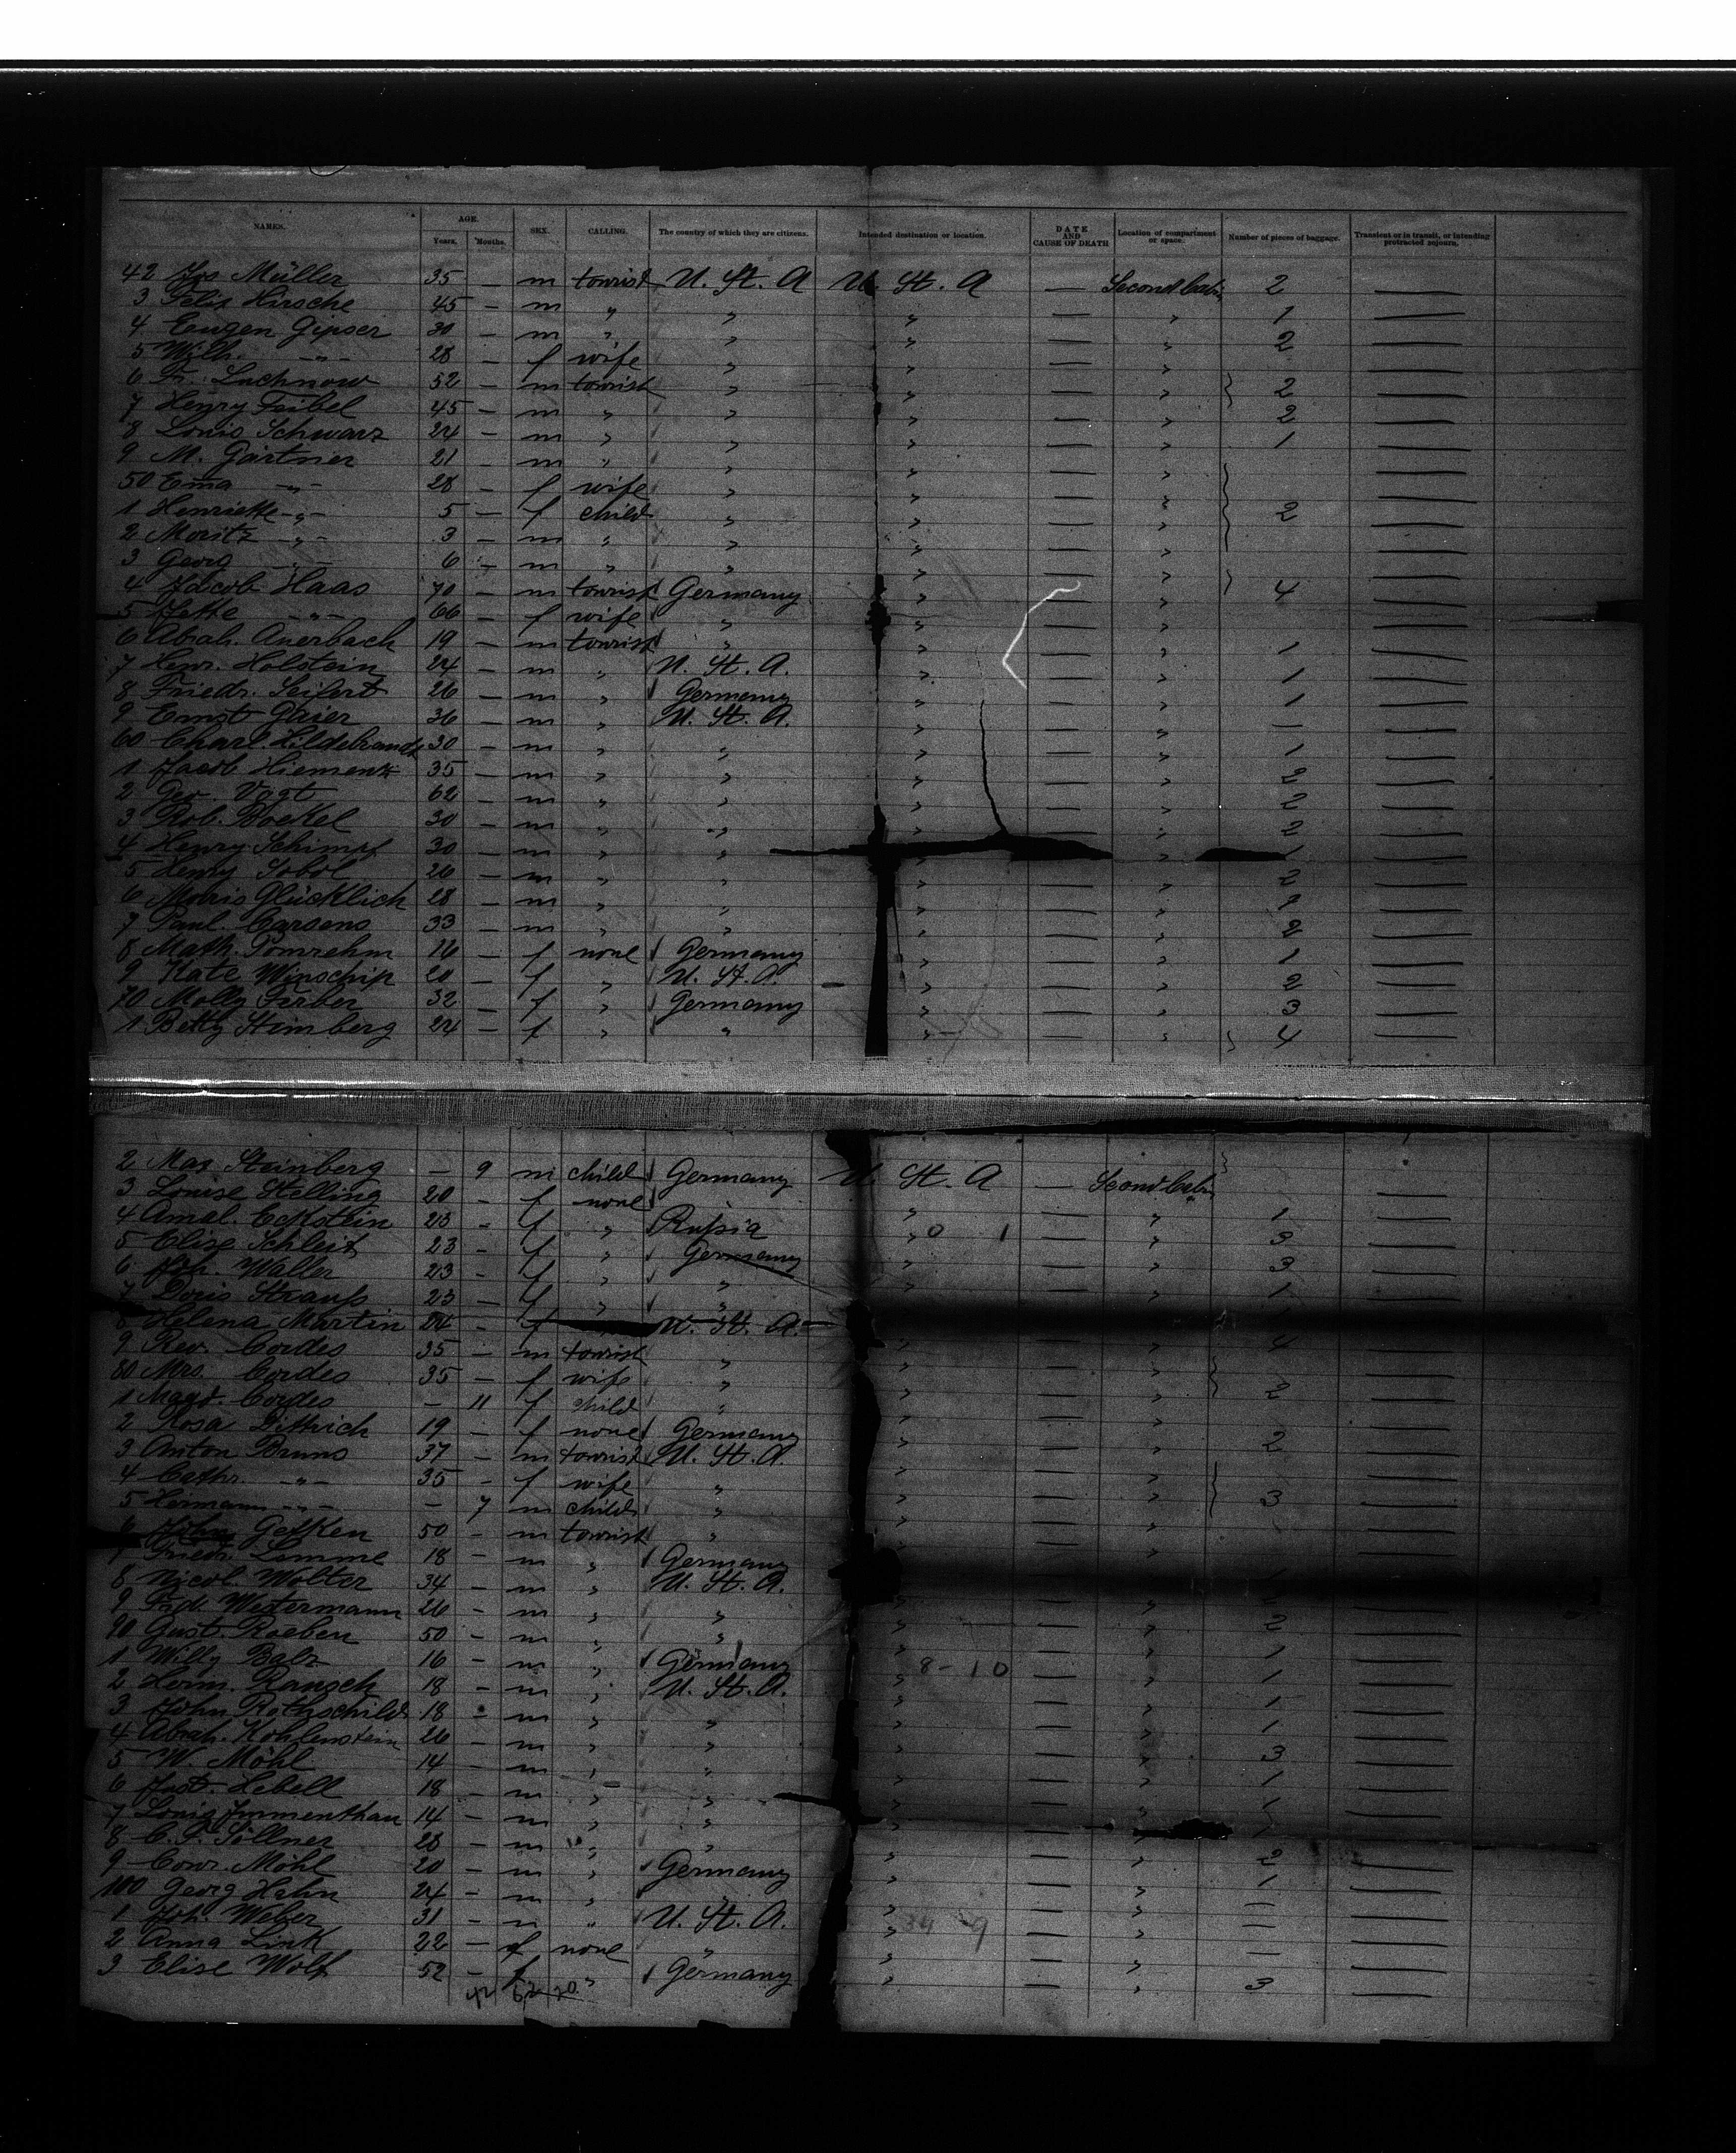 NAMES. AGE. SEX. CALLING. The country of which they are citizens. Intended destination or location. DATE AND CAUSE OF DEATH Location of compartment or space. Number of pieces of baggage. Transient or in transit, or intending protracted sojourn.
Years. Months.
42 Jos. Müller 35 — m tourist U. St. A U. St. A — Second Cabin 2 —
3 Felix Hirsche 45 — m " " " — " 1 —
4 Eugen Gipser 30 — m " " " — " 2 —
5 Wilh. -"- 28 — f wife " " — " —
6 Fr. Luchnow 52 — m tourist " " — " 2 —
7 Henry Feibel 45 — m " " " — " 2 —
8 Louis Schwarz 24 — m " " " — " 1 —
9 M. Gärtner 21 — m " " " — " —
50 Ema -"- 28 — f wife " " — " —
1 Henriette -"- 5 — f child " " — " 2 —
2 Moritz -"- 3 — m " " " — " —
3 Georg 6 — m " " " — " —
4 Jacob Haas 70 — m tourist Germany " — " 4 —
5 Jette -"- 66 — f wife " " — " —
6 Abrah. Auerbach 19 — m tourist " " — " 1 —
7 Henr. Holstein 24 — m " U. St. A. " — " 1 —
8 Friedr. Seifert 26 — m " Germany " — " 1 —
9 Ernst Gaier 36 — m " U. St. A. " — " — —
60 Charl. Hildebrandt 30 — m " " " — " 1 —
1 Jacob Hiemenz 35 — m " " " — " 2 —
2 Geo. Vogt 62 — m " " " — " 2 —
3 Rob. Boekel 30 — m " " " — " 2 —
4 Henry Schimpf 30 — m " " " — " 1 —
5 Henry Sobol 26 — m " " " — " 2 —
6 Morris Glücklich 28 — m " " " — " —
7 Paul Carsens 33 — m " " " — " 2 —
8 Math. Pomrehm 16 — f none Germany " — " 1 —
9 Kate Winschip 20 — f " U. St. A. " — " 2 —
70 Molly Ferber 32 — f " Germany " — " 3 —
1 Betty Steinberg 24 — f " " " — " 4 —
2 Max Steinberg — 9 m child Germany U. St. A — Second Cabin
3 Louise Stelling 20 — f none " — " 1 —
4 Amal. Eckstein 23 — f " Russia " — " 3 —
5 Elise Schleif 23 — f " Germany " — " 3 —
6 Waller 23 — f " " " 1 —
7 Doris Strauss 23 — f " "
8 Helena Martin 24 — f U. St. A. 4 —
9 Rev. Cordes 35 — m tourist " " — " —
80 Mrs. Cordes 35 — f wife " " — " 2 —
1 Magd. Cordes — 11 f child " " — " —
2 Rosa Dittrich 19 — f none Germany " — " 2 —
3 Anton Bruns 37 — m tourist U. St. A. " — " —
4 Cathr. -"- 35 — f wife " " — " 3 —
5 Hermann -"- — 7 m child " " — " —
6 John Gefken 50 — m tourist " " — " —
7 Friedr. Lemme 18 — m " Germany
8 Nicol. Wolter 34 — m " U. St. A.
9 Frdr. Westermann 26 — m " " " — " 2 —
90 Gust. Roeben 50 — m " " " — " 1 —
1 Willy Balz 16 — m " Germany 8-10 — " 1 —
2 Herm. Rausch 18 — m " U. St. A. " — " 1 —
3 John Rothschild 18 — m " " " — " 1 —
4 Abrah. Kohlenstein 26 — m " " " — " 3 —
5 W. Möhl 14 — m " " " — " 1 —
6 Just. Lebell 18 — m " " " — " 1 —
7 Louis Immenthau 14 — m " " " — "
8 C. F. Söllner 28 — m " " " — " 2 —
9 Conr. Möhl 20 — m " Germany " — " 1 —
100 Georg Hahn 24 — m " " " — " — —
1 Joh. Weber 31 — m " U. St. A. " — " — —
2 Anna Link 22 — f none " " — " — —
3 Elise Wolf 52 — f " Germany " — " 3 —